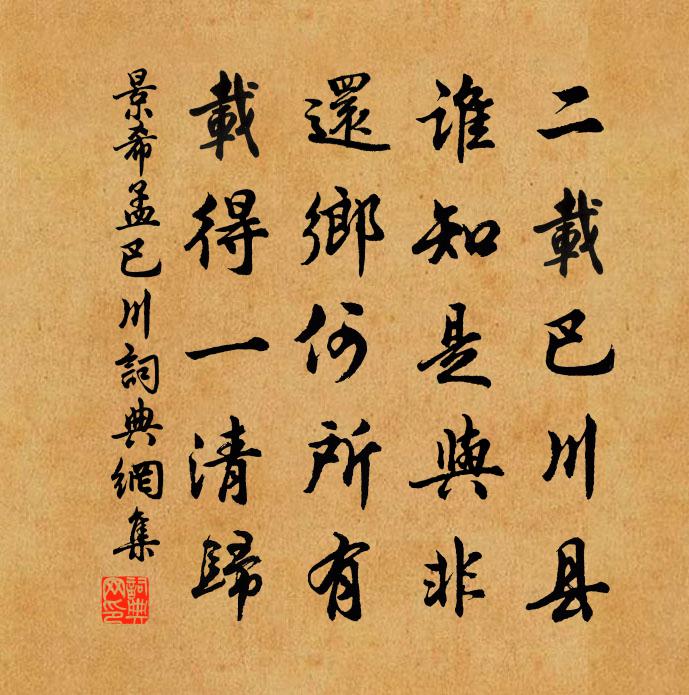 二載巴川县
誰知是與非
還鄉何所有
載得一清歸
景希孟巴川詞典網集
詞典
网印